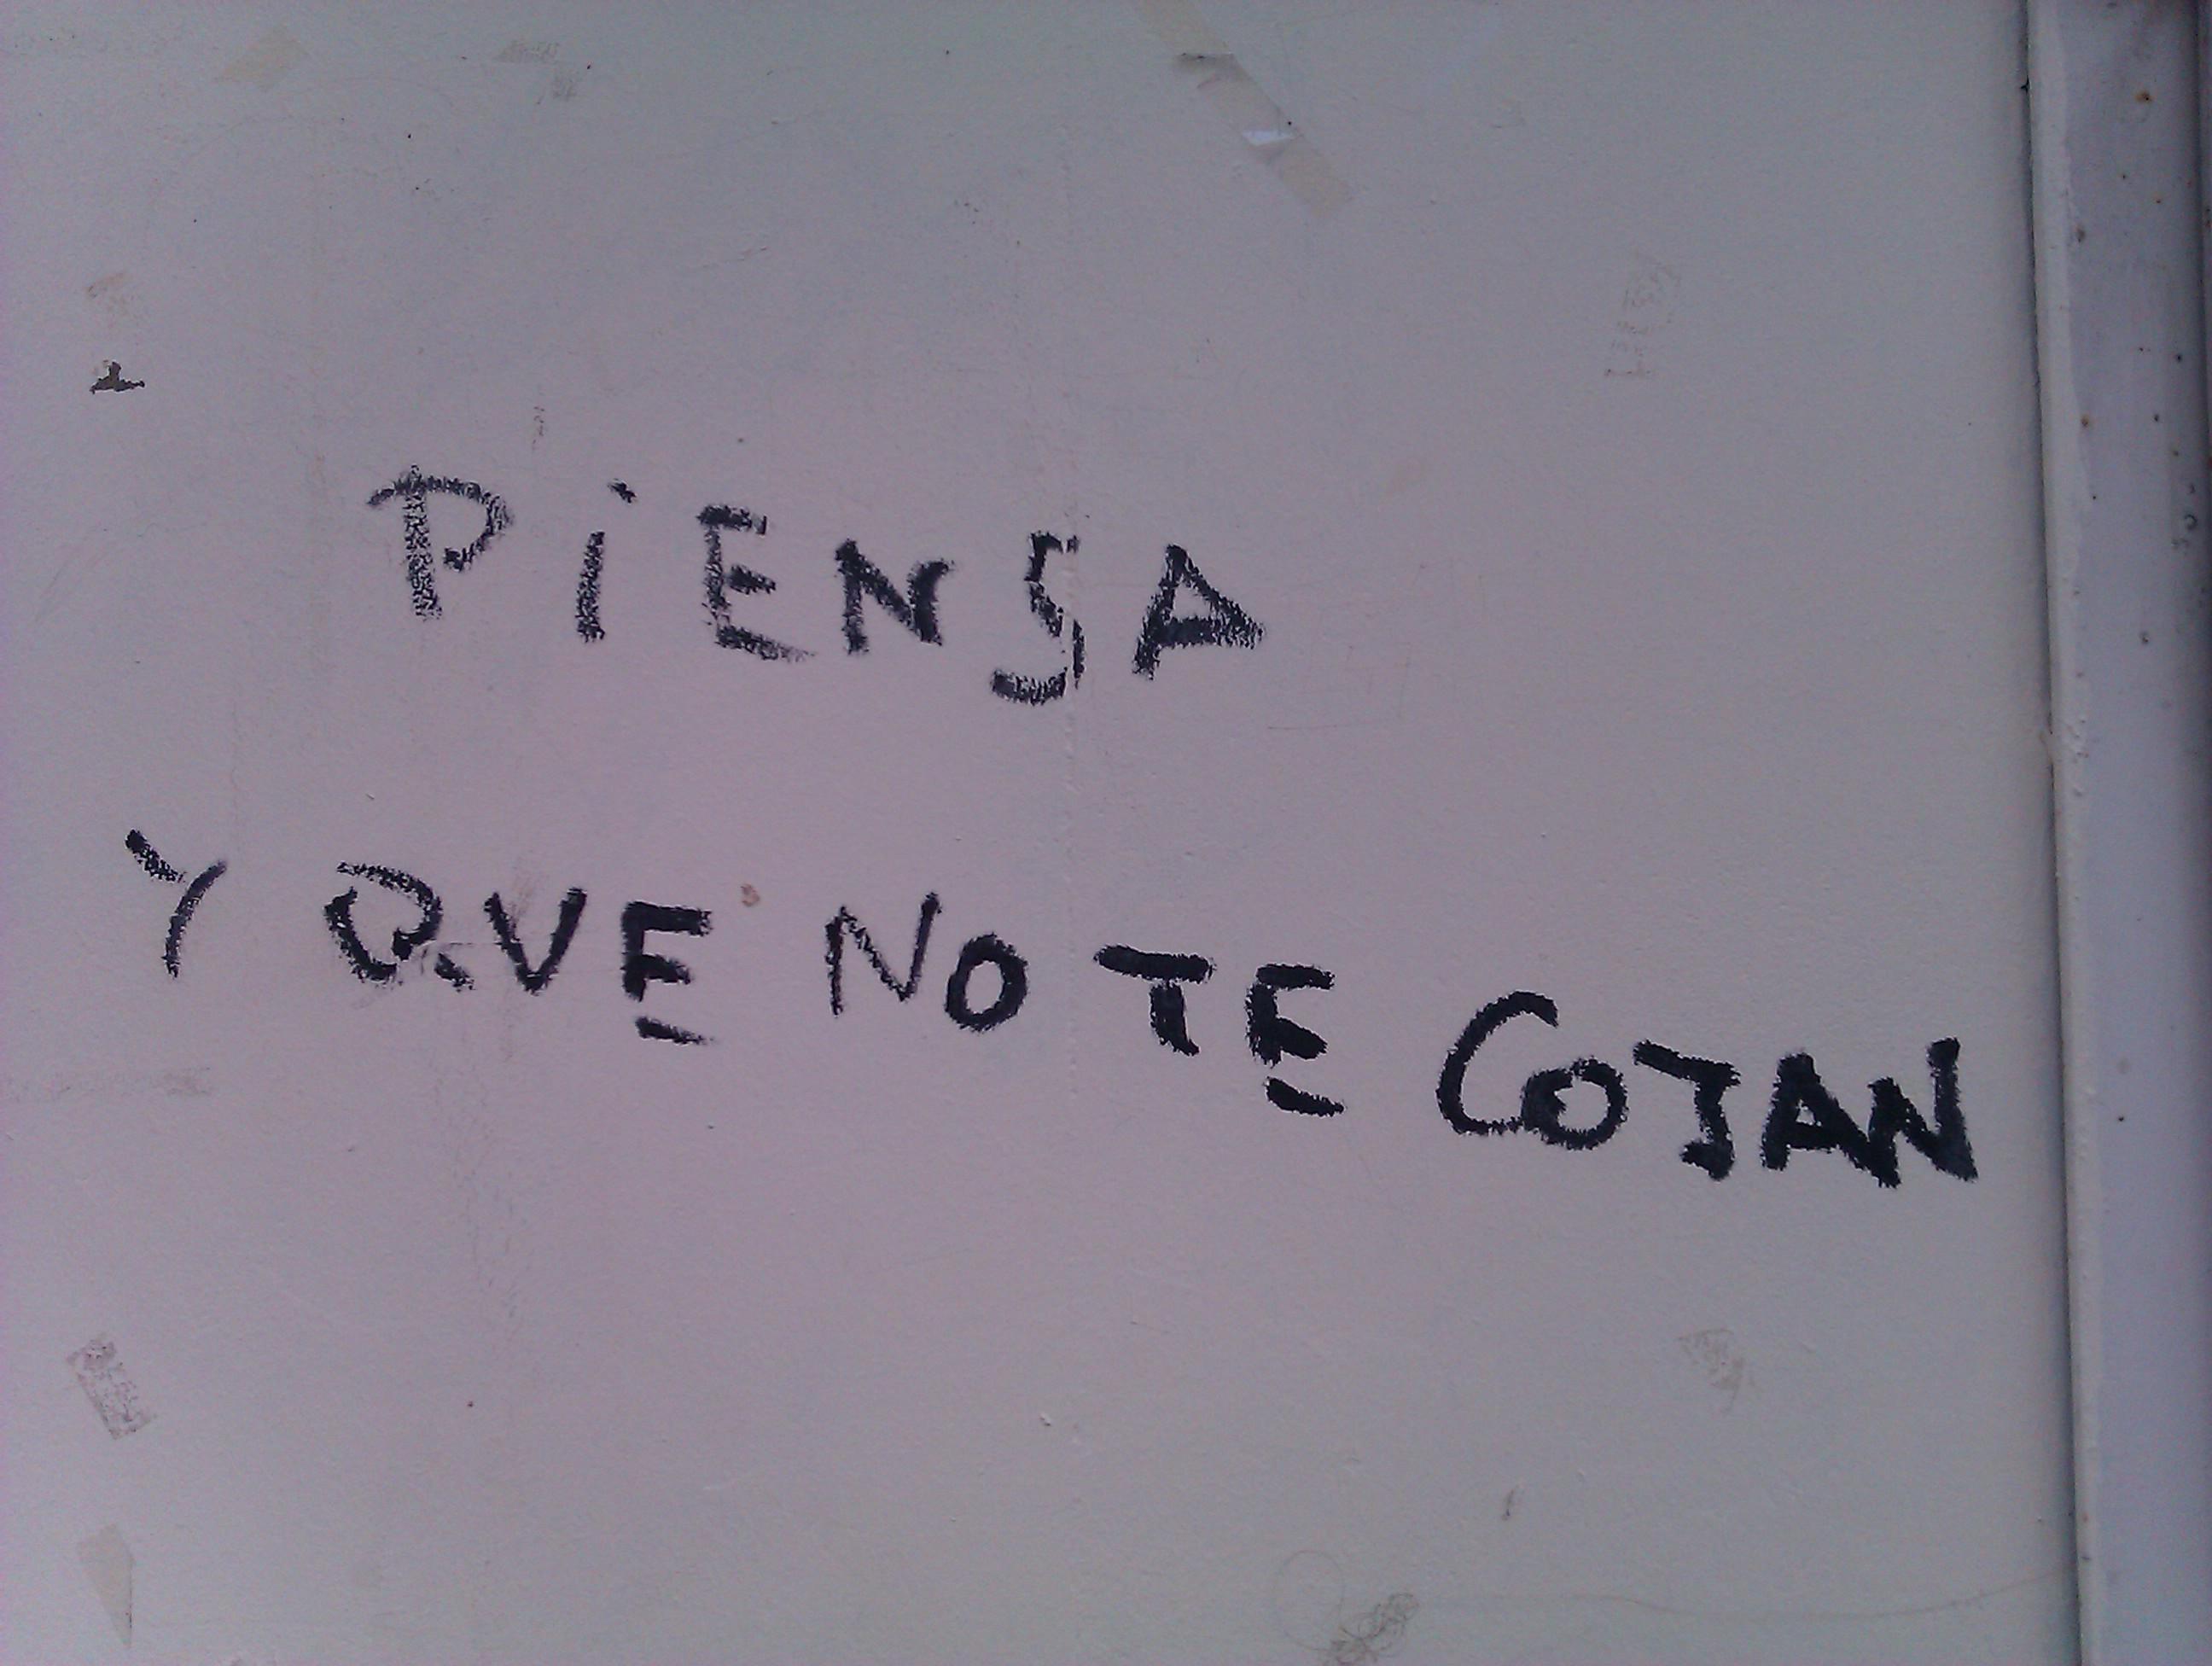 PiENSA
Y QVE NO TE COJAN